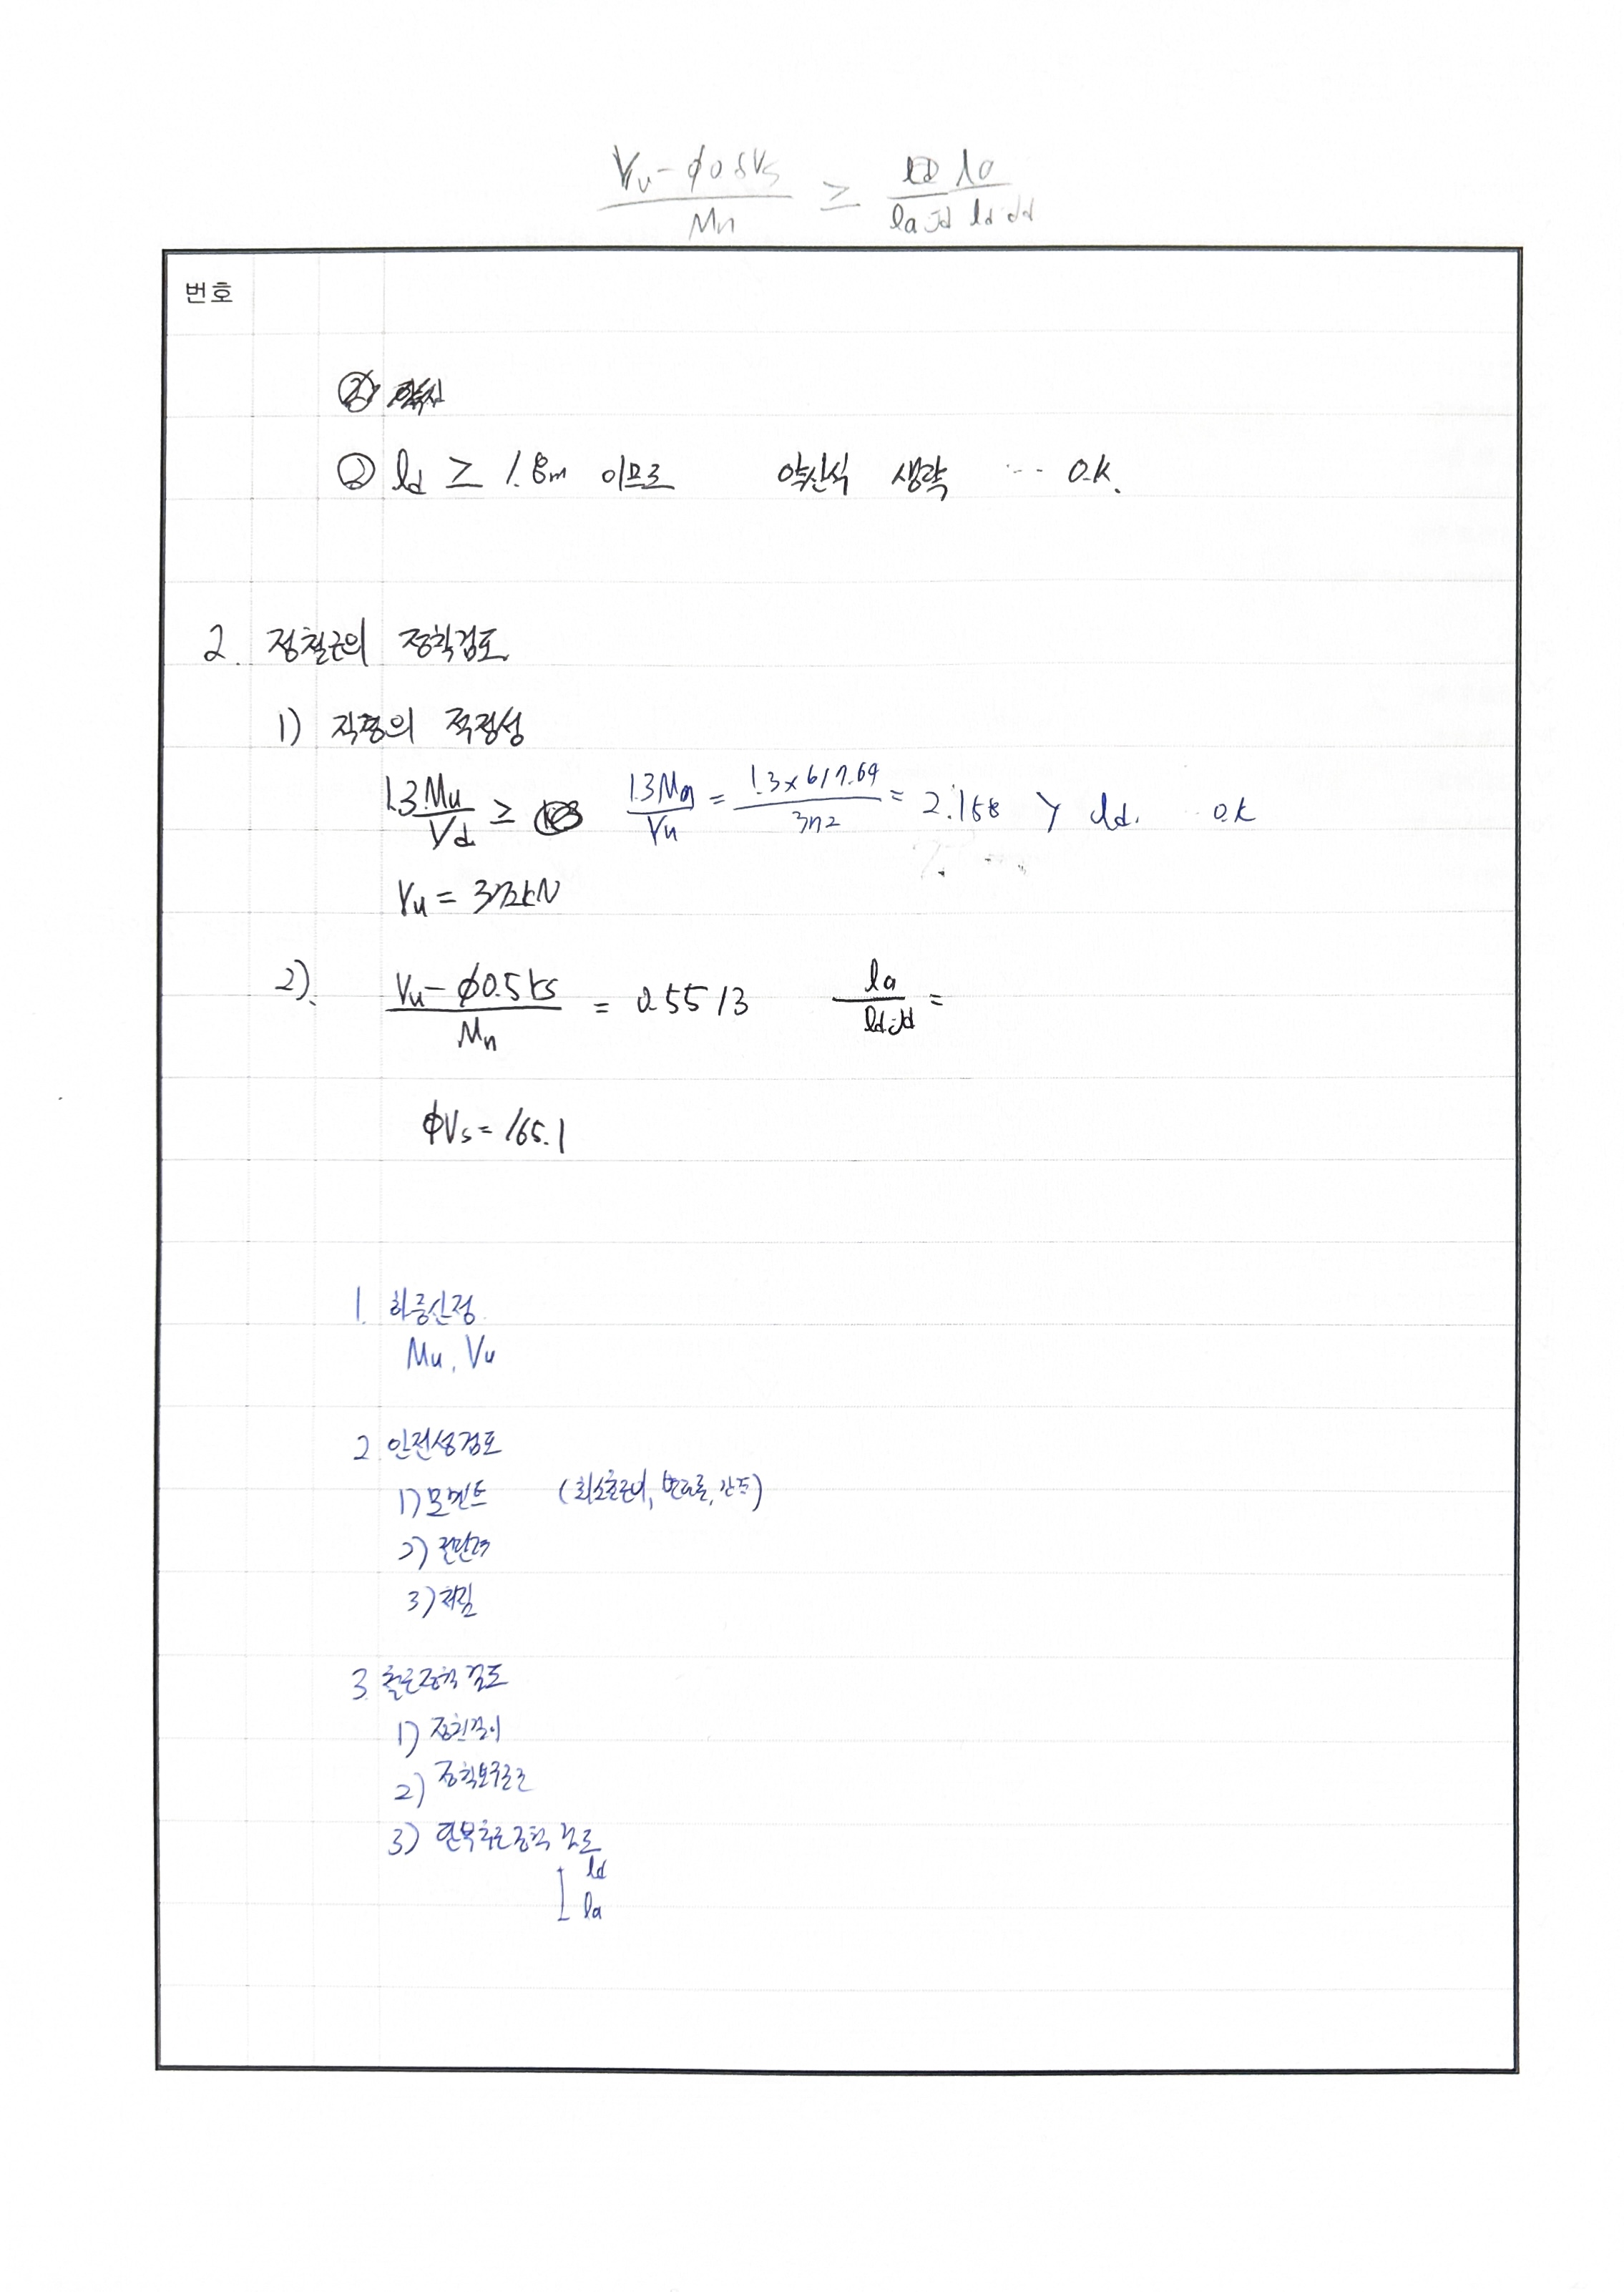 Vu - ϕ0.5Vs / Mn ≥ la / ld·jd
번호
② ld ≥ 1.8m 이므로 약산식 생략 ··· O.K.
2. 정철근의 정착검토
1) 직경의 적정성
1.3Mu / Vd ≥ 1.3Mn / Vu = 1.3×617.69 / 372 = 2.158 > ld. ·· O.K
Vu = 372kN
2). Vu - ϕ0.5Vs / Mn = 0.5513 la / ld·jd =
ϕVs = 165.1
1. 하중산정
Mu, Vu
2. 안전성검토
1) 모멘트 (최소철근비, 변형률, 간격)
2) 전단력
3) 처짐
3. 철근정착 검토
1) 정착길이
2) 정착보유길이
3) 단부철근정착 검토
ld
la